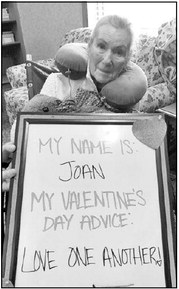 MY NAME IS:
JOAN
MY VALENTINE'S
DAY ADVICE:
LOVE ONE ANOTHER!